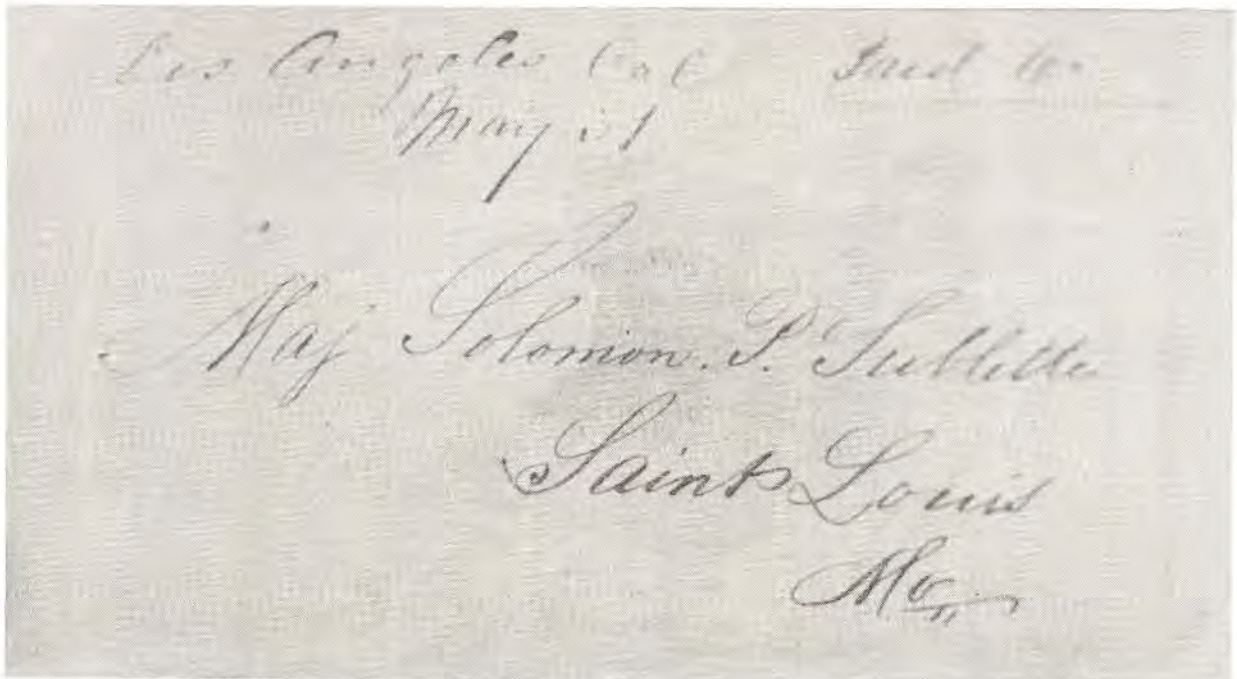 Los Angeles Cal
May 31
Maj Solomon. P. Sublette
Saint Louis
Mo